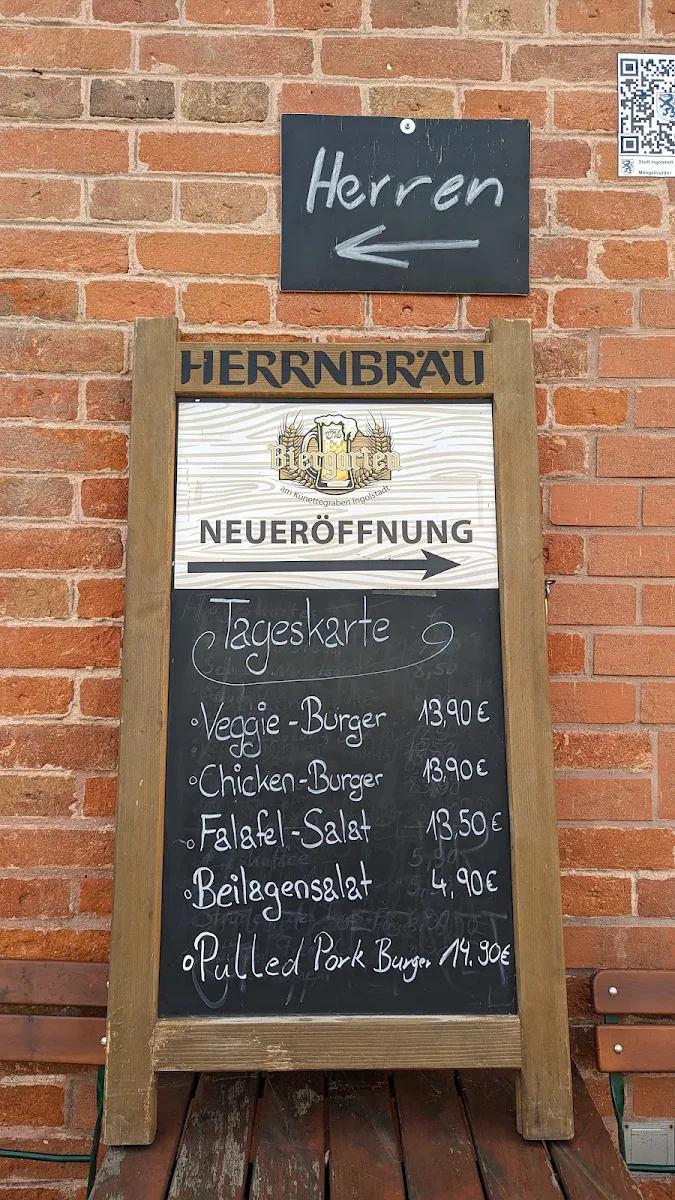 Herren
Stadt Ingolstadt
Mängelmelder
HERRNBRÄU
Biergarten
am Künettegraben Ingolstadt
NEUERÖFFNUNG
Tageskarte
Veggie-Burger 13,90 €
Chicken-Burger 13,90 €
Falafel-Salat 13,50 €
Beilagensalat 4,90 €
Pulled Pork Burger 14.90 €